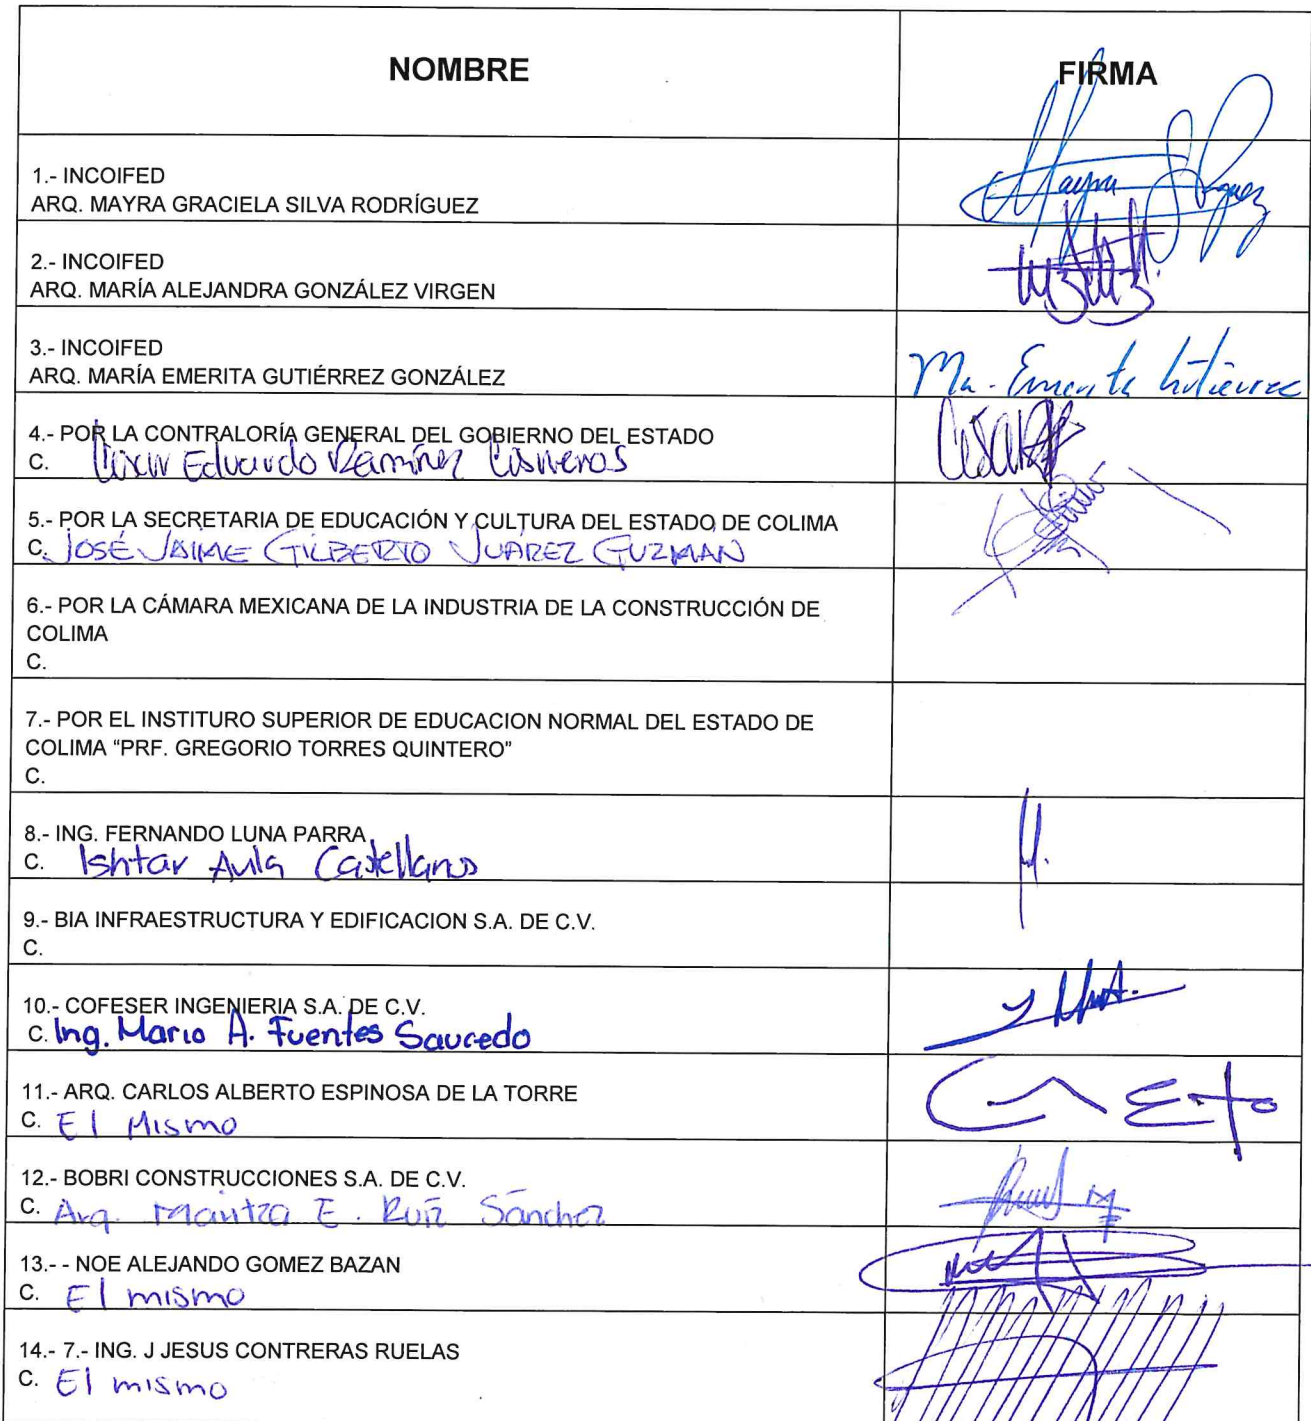 NOMBRE FIRMA
1.- INCOIFED
ARQ. MAYRA GRACIELA SILVA RODRÍGUEZ
2.- INCOIFED
ARQ. MARÍA ALEJANDRA GONZÁLEZ VIRGEN
3.- INCOIFED
ARQ. MARÍA EMERITA GUTIÉRREZ GONZÁLEZ
Ma. Emerita Gutiérrez
4.- POR LA CONTRALORÍA GENERAL DEL GOBIERNO DEL ESTADO
C. Eduardo Ramírez Cisneros
5.- POR LA SECRETARIA DE EDUCACIÓN Y CULTURA DEL ESTADO DE COLIMA
C. JOSÉ JAIME GILBERTO JUÁREZ GUZMAN
6.- POR LA CÁMARA MEXICANA DE LA INDUSTRIA DE LA CONSTRUCCIÓN DE
COLIMA
C.
7.- POR EL INSTITURO SUPERIOR DE EDUCACION NORMAL DEL ESTADO DE
COLIMA “PRF. GREGORIO TORRES QUINTERO”
C.
8.- ING. FERNANDO LUNA PARRA
C. Ishtar Castellanos
9.- BIA INFRAESTRUCTURA Y EDIFICACION S.A. DE C.V.
C.
10.- COFESER INGENIERIA S.A. DE C.V.
C. Ing. Mario A. Fuentes Saucedo
11.- ARQ. CARLOS ALBERTO ESPINOSA DE LA TORRE
C. El Mismo
12.- BOBRI CONSTRUCCIONES S.A. DE C.V.
C. Arq. Maritza E. Ruíz Sánchez
13.- - NOE ALEJANDO GOMEZ BAZAN
C. El mismo
14.- 7.- ING. J JESUS CONTRERAS RUELAS
C. El mismo